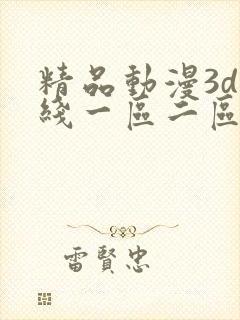 精品動漫3d
綫一區二區
雷賢忠